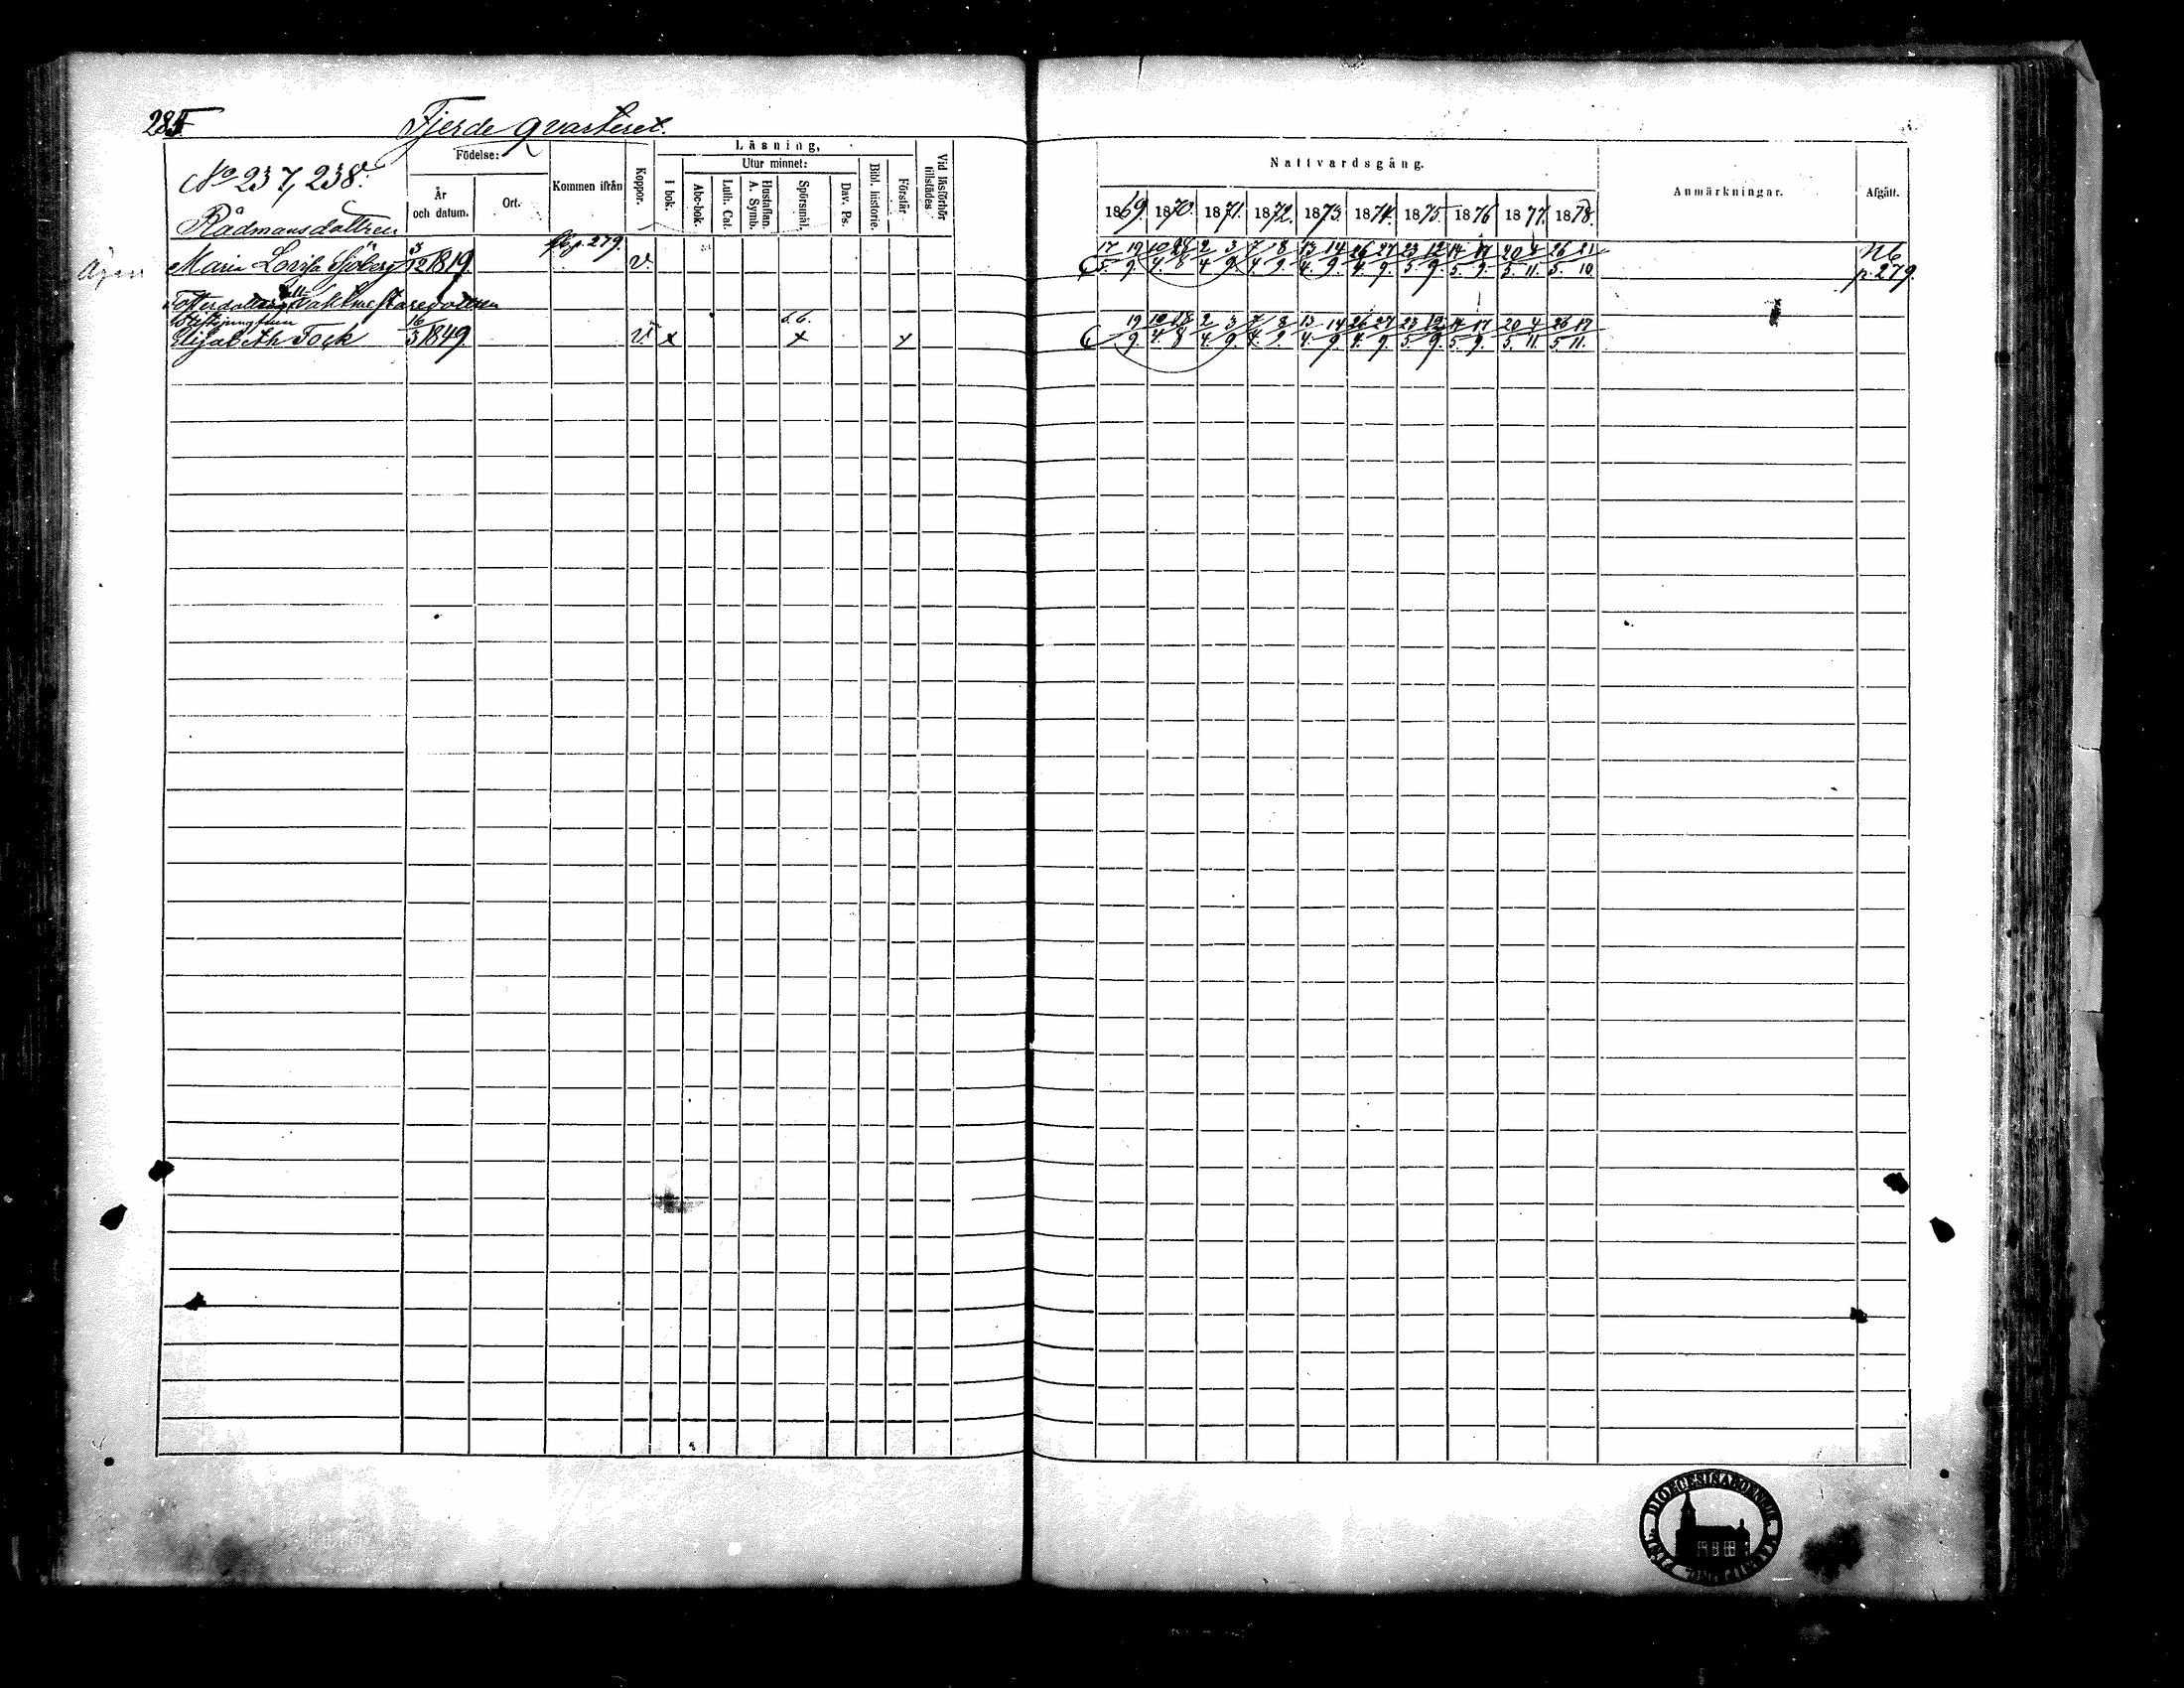 285
Fjerde qvarteret.
No 237, 238.
Rådmansdottren
Födelse:
År och datum.
Ort.
Kommen ifrån
Koppor.
Läsning,
I bok.
Utur minnet:
Abc-bok.
Luth. Cat.
Hustaflan. A. Symb.
Spörsmål.
Dav. Ps.
Bibl. historie.
Förstår.
Vid läsförhör tillstädes
Nattvardsgång.
1869. 1870. 1871. 1872. 1873. 1874. 1875. 1876 1877. 1878.
Anmärkningar.
Afgått.
Maria Lovisa Sjöberg 3/12 1819 p. 279. v. 17/5. 19/9. 10/4. 28/8 2/4 3/9. 7/4. 8/9. 13/4. 14/9. 26/4. 27/9. 23/5 12/9. 14/5. 17/9. 20/5. 4/11. 26/5. 21/10 Nb p. 279.
Elisabeth Fock 16/3 1849. v. x s.b. x x 19/9. 10/4. 28/8 2/4. 3/9. 7/4. 8/9. 13/4. 14/9 26/4. 27/9. 23/5. 12/9. 14/5. 17/9. 20/5. 4/11. 26/5. 17/11.